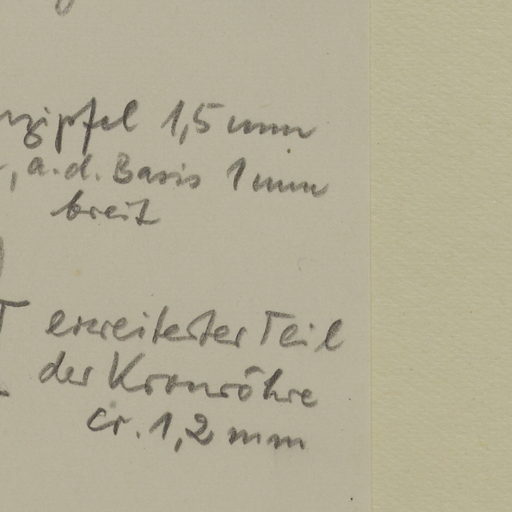 zipfel 1,5 mm
, a. d. Basis 1 mm
breit
erweiterter Teil
der Kronröhre
cr. 1,2 mm